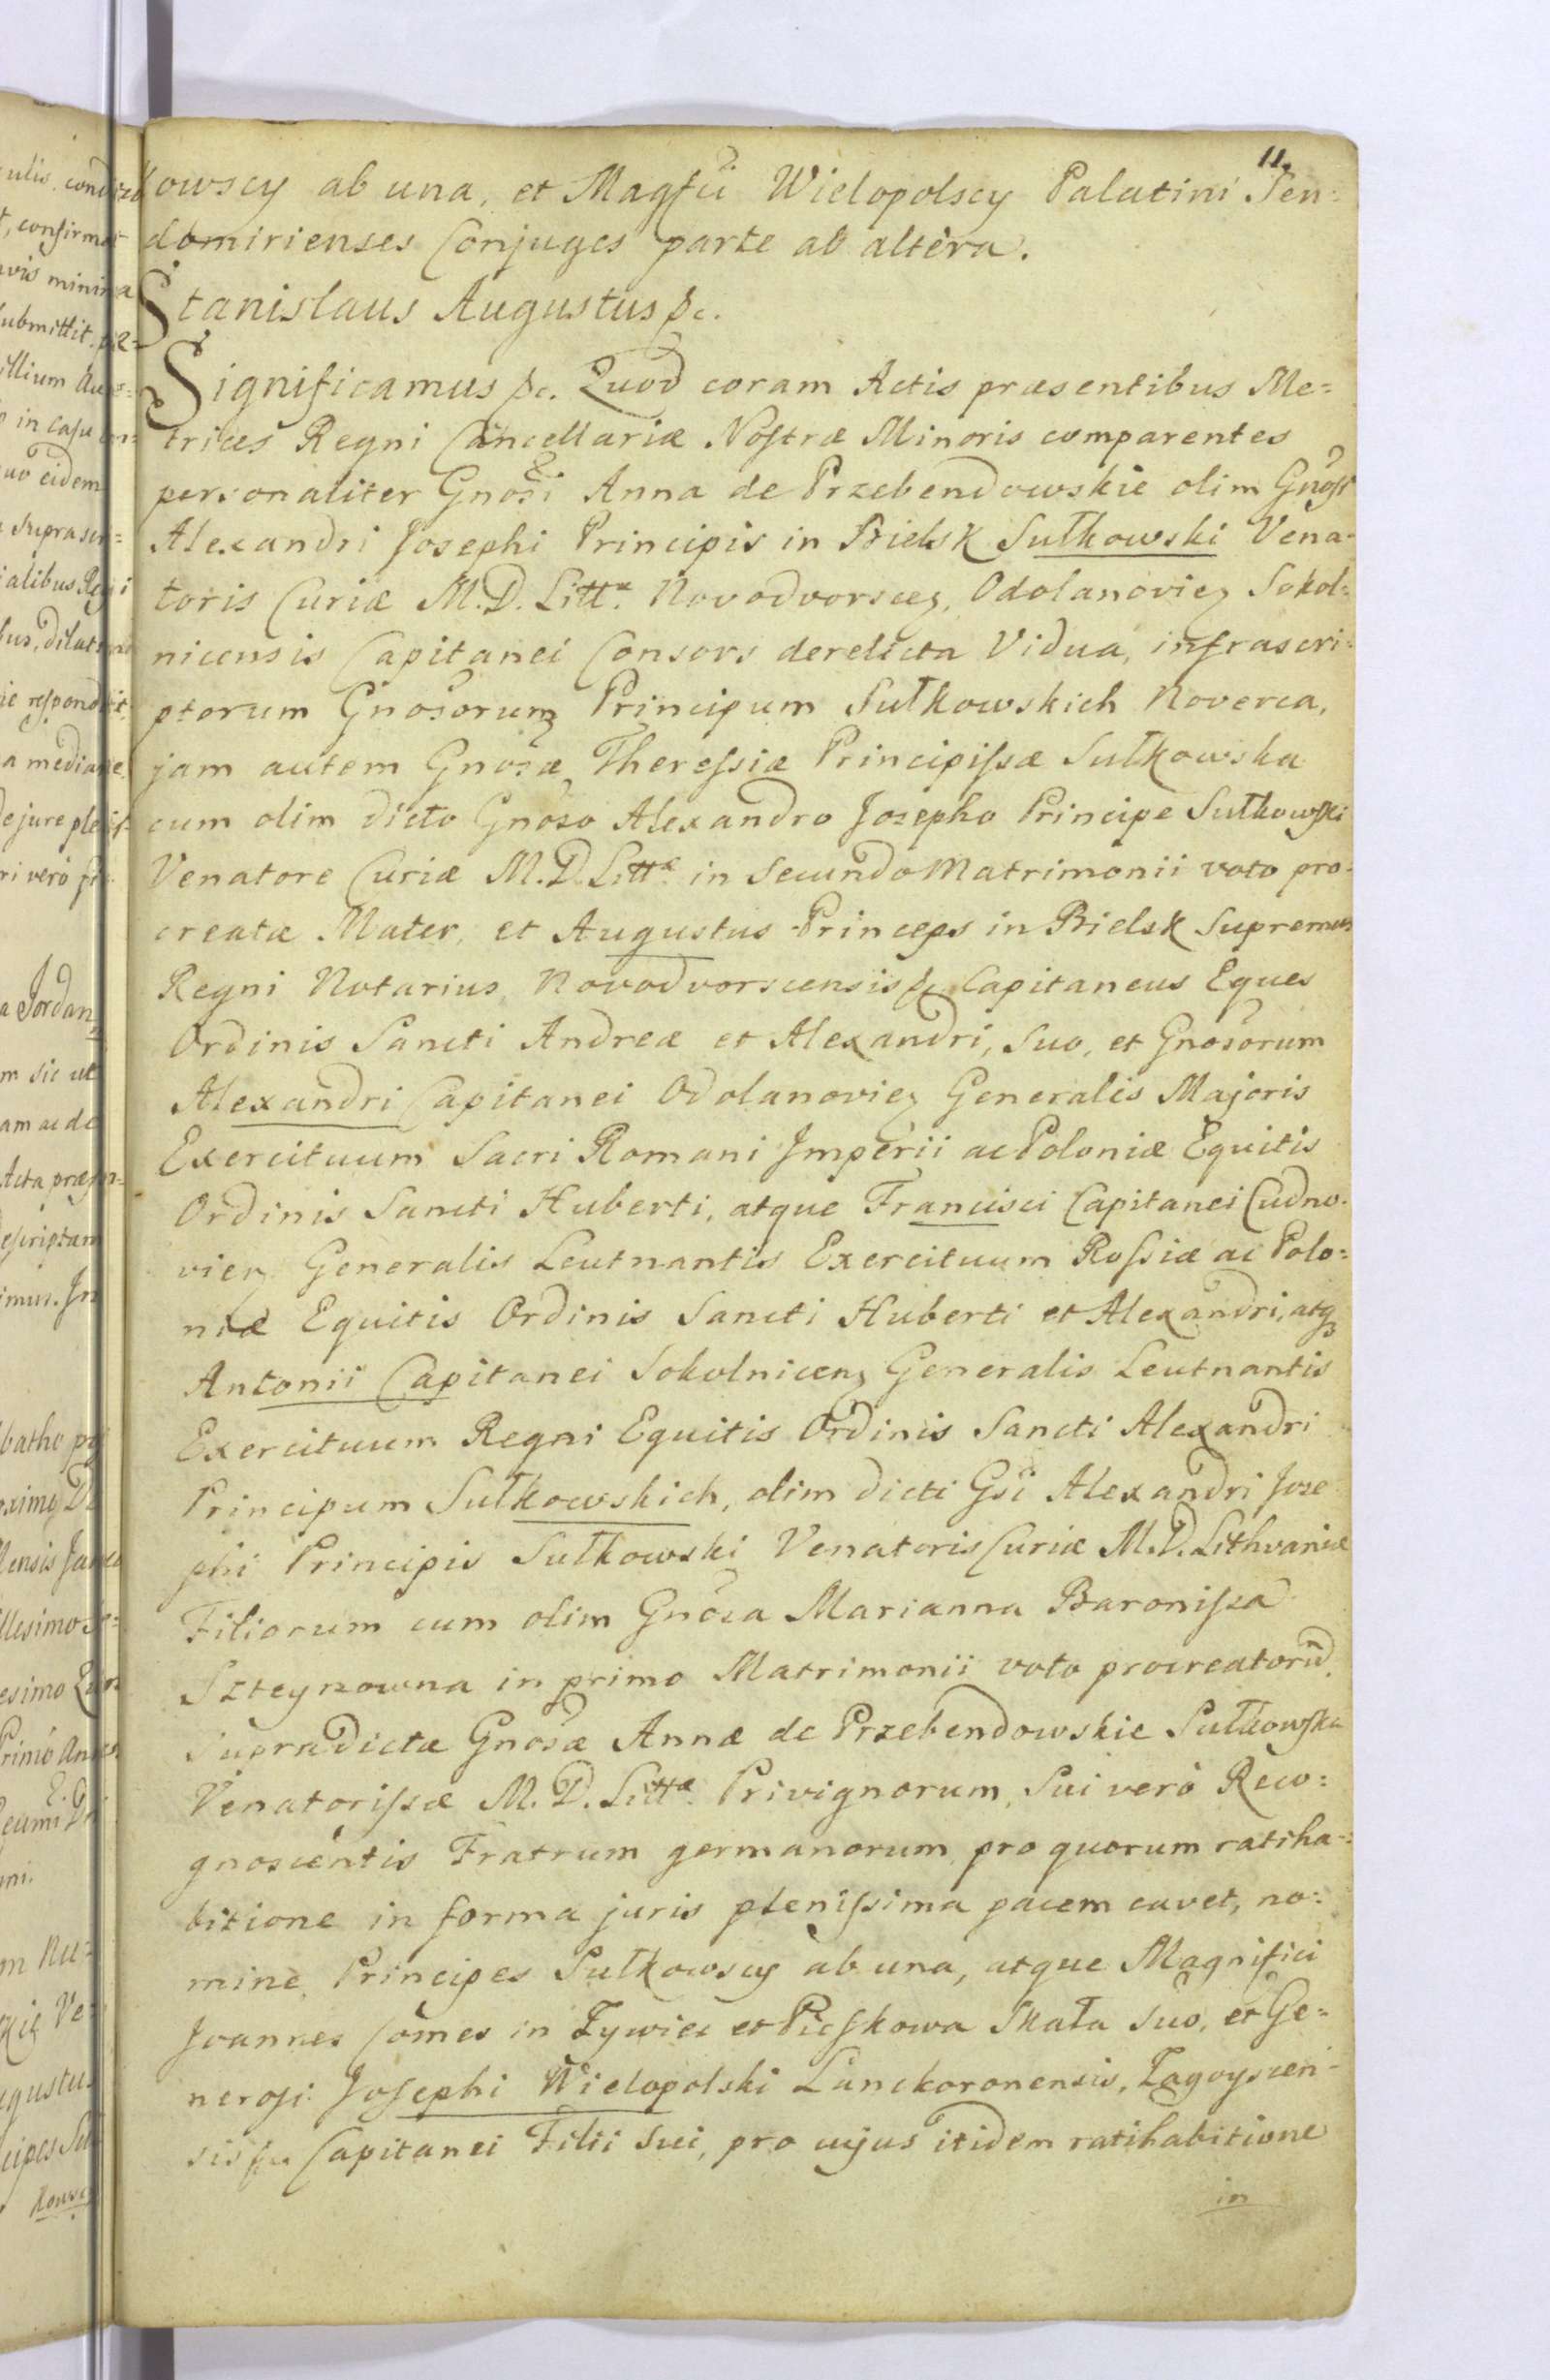 11.
kowscy ab una, et Magfci Wielopolscy Palatini Sen=
domirienses Conjuges parte ab altera.
Stanislaus Augustus &c.
Significamus &c. Quod coram Actis præsentibus Me=
trices Regni Cancellariæ Nostræ Minoris comparentes
personaliter Gnosi Anna de Przebendowskie olim Gnosi
Alexandri Josephi Principis in Bielsk Sułkowski Vena=
toris Curiæ M.D. Littæ. Novodvorscen, Odolanovien Sokol=
nicensis Capitanei Consors derelicta Vidua, infrascri=
ptorum Gnosorum Principum Sułkowskich Noverca,
jam autem Gnosæ Theressiæ Principissæ Sułkowska
cum olim dicto Gnoso Alexandro Josepho Principe Sułkowski
Venatore Curiæ M.D. Littæ. in secundo Matrimonii voto pro=
creatæ Mater, et Augustus Princeps in Bielsk Supremus
Regni Notarius, Novodvorscensis &c Capitaneus Eques
Ordinis Sancti Andreæ et Alexandri, suo, et Gnosorum
Alexandri Capitanei Odolanovien Generalis Majoris
Exercituum Sacri Romani Imperii ac Poloniæ Equitis
Ordinis Sancti Huberti, atque Francisci Capitanei Cudno=
vien Generalis Leutnantis Exercituum Rossiæ ac Polo=
niæ Equitis Ordinis Sancti Huberti et Alexandri, atq
Antonii Capitanei Sokolnicen Generalis Leutnantis
Exercituum Regni Equitis Ordinis Sancti Alexandri
Principum Sułkowskich, olim dicti Gsi Alexandri Jose
phi Principis Sułkowski Venatoris Curiæ M.D. Lithvaniæ
Filiorum cum olim Gnosa Marianna Baronissa
Szteynowna in primo Matrimonii voto procreatorũ
supradictæ Gnosæ Annæ de Przebendowskie Sułkowska
Venatorissæ M.D. Littæ. Privignorum, Sui verò Reco=
gnoscentis Fratrum germanorum, pro quorum ratiha=
bitione in forma juris plenissima pacem cavet, no=
mine, Principes Sułkowscy ab una, atque Magnifici
Joannes Comes in Zywiec et Pieskowa Skała suo, et Ge=
nerosi Josephi Wielopolski Lanckoronensis, Zagoyscen=
sis &c Capitanei Filii sui, pro cujus itidem ratihabitione
in